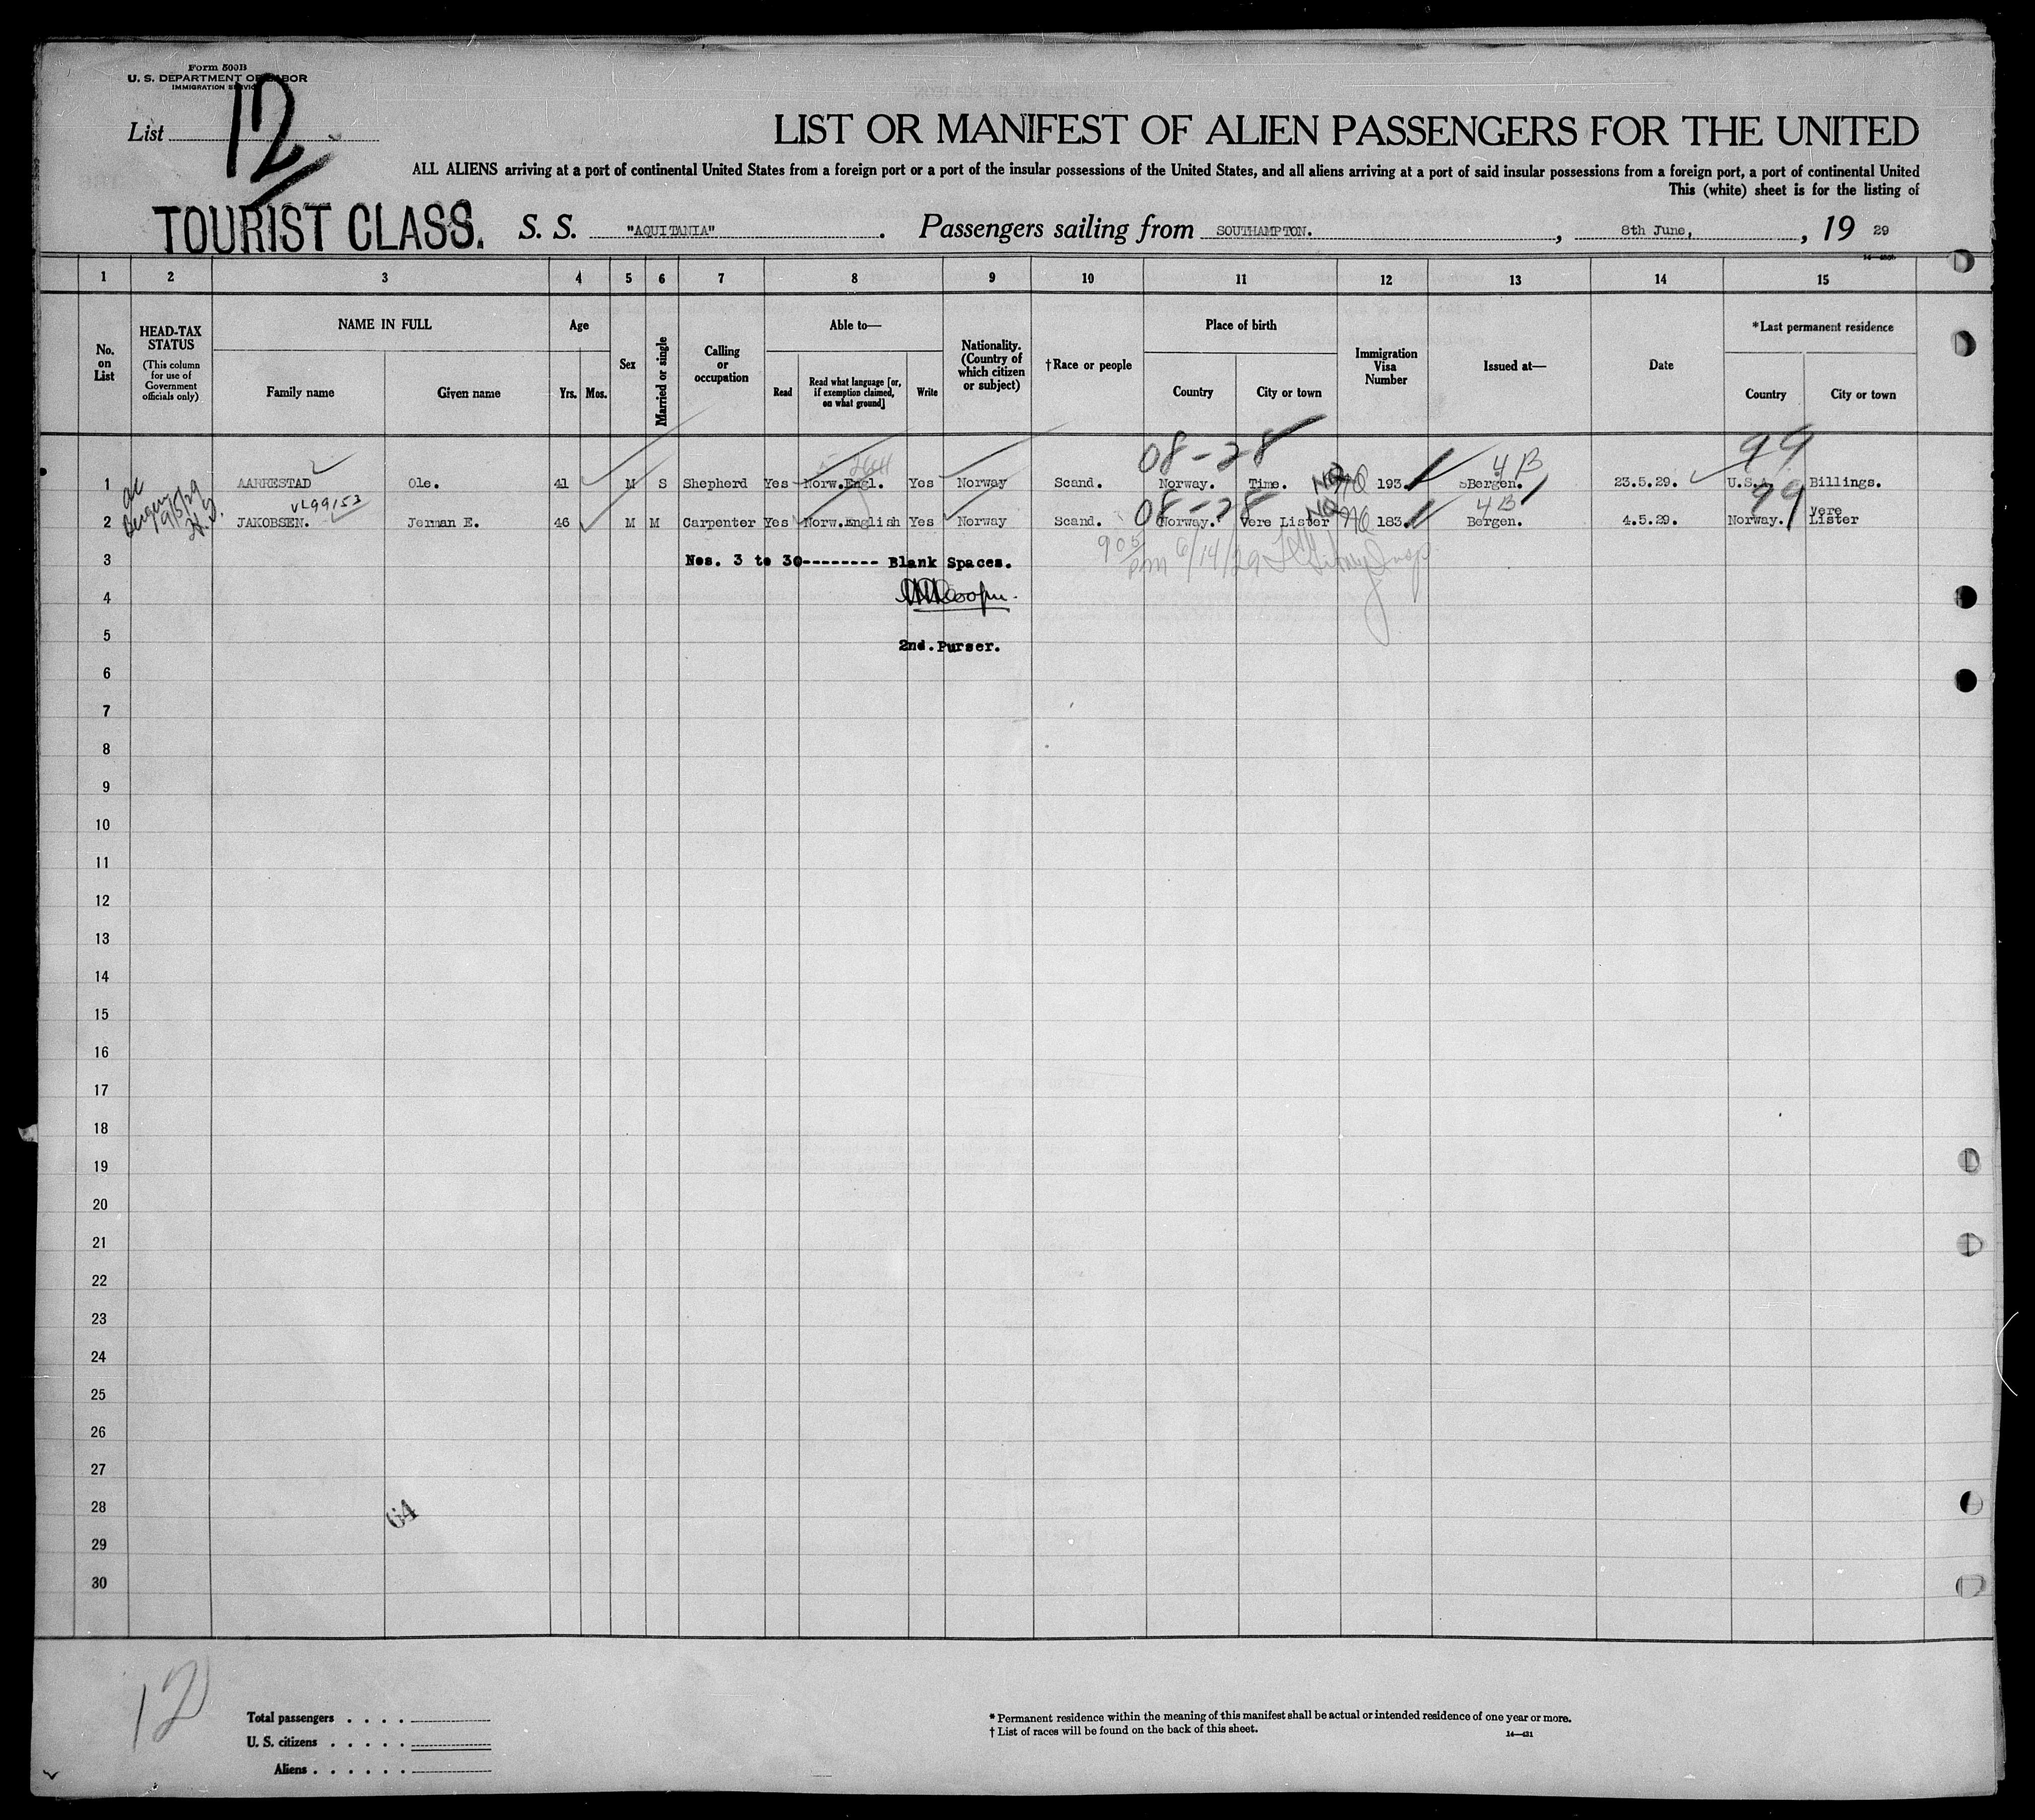 Form 500B
U. S. DEPARTMENT OF LABOR
IMMIGRATION SERVICE
List 12
LIST OR MANIFEST OF ALIEN PASSENGERS FOR THE UNITED
ALL ALIENS arriving at a port of continental United States from a foreign port or a port of the insular possessions of the United States, and all aliens arriving at a port of said insular possessions from a foreign port, a port of continental United
This (white) sheet is for the listing of
TOURIST CLASS. S. S. "AQUITANIA". Passengers sailing from SOUTHAMPTON., 8th June, , 19 29
1 2 3 4 5 6 7 8 9 10 11 12 13 14 15
No. on List
HEAD-TAX STATUS
(This column for use of Government officials only)
NAME IN FULL
Family name Given name
Age
Yrs. Mos.
Sex
Married or single
Calling or occupation
Able to—
Read
Read what language [or, if exemption claimed, on what ground]
Write
Nationality. (Country of which citizen or subject)
†Race or people
Place of birth
Country City or town
Immigration Visa Number
Issued at—
Date
*Last permanent residence
Country City or town
08-28 4B 99
1 AARRESTAD Ole. 41 M S Shepherd Yes Norw.Engl. Yes Norway Scand. Norway. Time. NQ 193 Bergen. 23.5.29. U.S.A. Billings.
08-28 4B 99
2 JAKOBSEN. Jerman E. 46 M M Carpenter Yes Norw.English Yes Norway Scand. Norway. Vere Lister NQ 183. Bergen. 4.5.29. Norway. Vere Lister
3 Nos. 3 to 30-------- Blank Spaces.
905 6/14/29
4
5 2nd.Purser.
6
7
8
9
10
11
12
13
14
15
16
17
18
19
20
21
22
23
24
25
26
27
28
64
29
30
12
Total passengers . . . .
U. S. citizens . . . . .
Aliens . . . . . .
* Permanent residence within the meaning of this manifest shall be actual or intended residence of one year or more.
† List of races will be found on the back of this sheet.
14—431